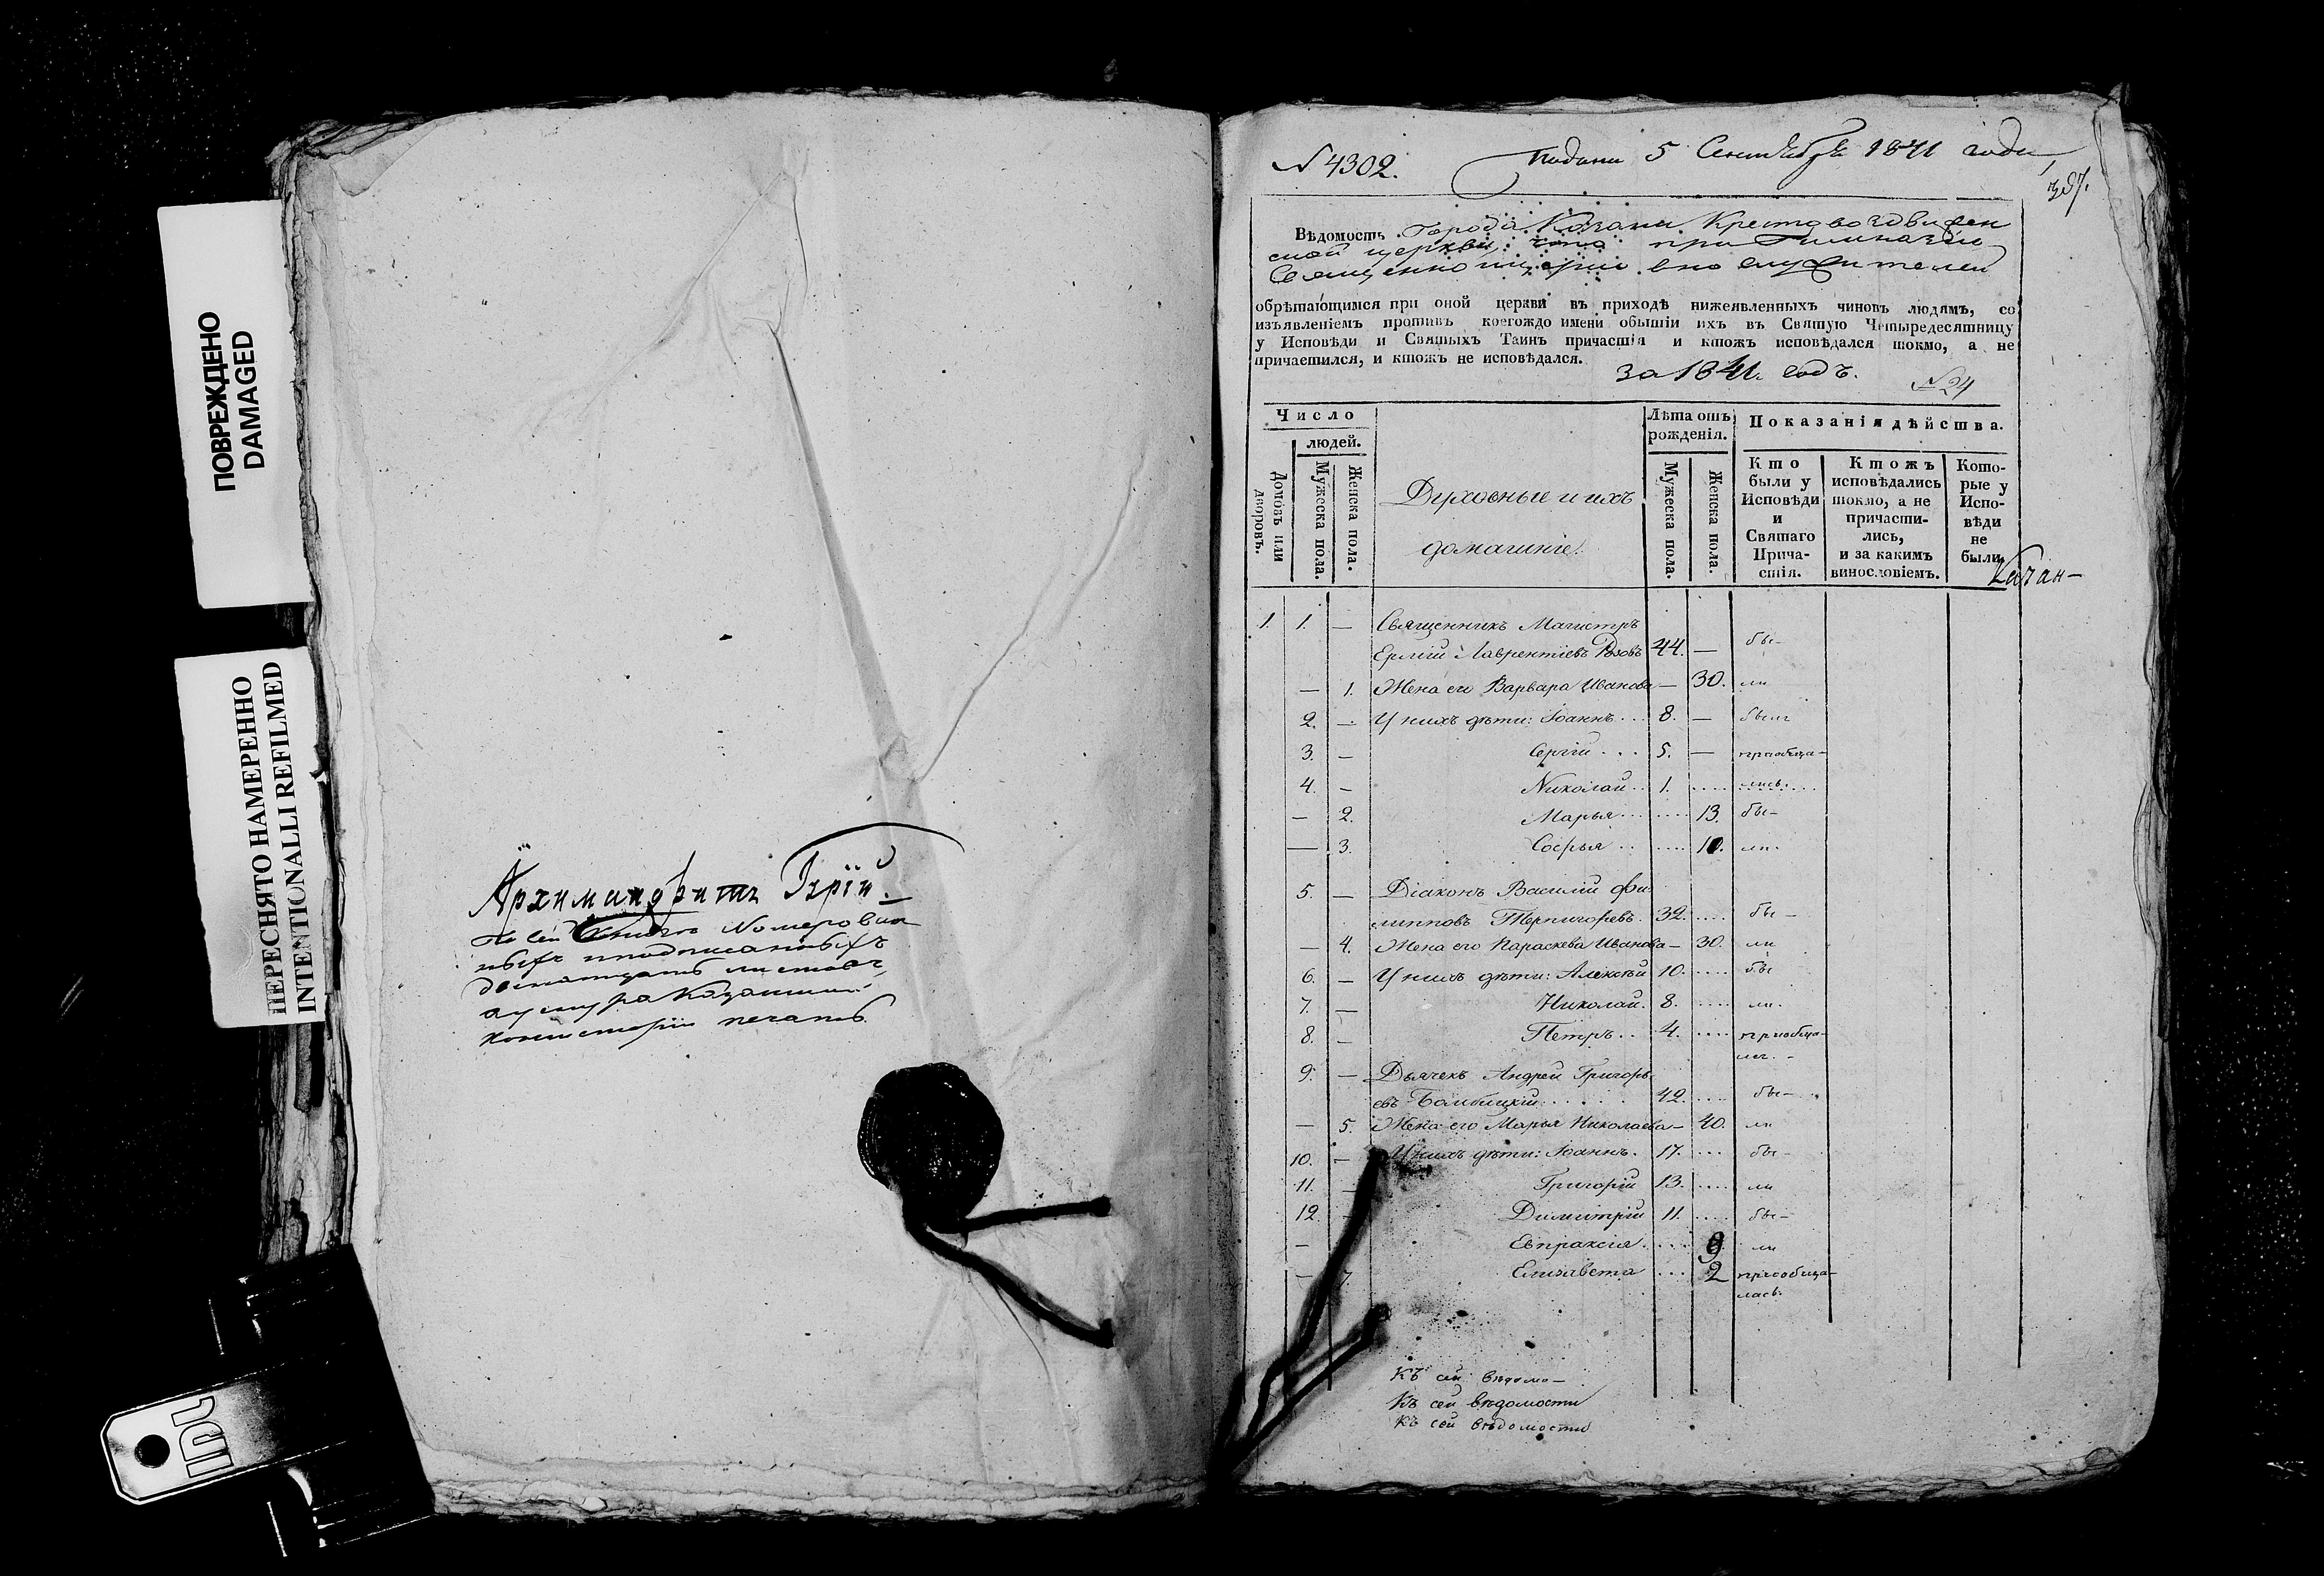 ПОВРЕЖДЕНО
DAMAGED
ПЕРЕСНЯТО НАМЕРЕННО
INTENTIONALLI REFILMED
Архимандритъ Гурій.
По сей книге Номерован
ныхъ и подписанныхъ
листовъ
Казанской
консисторіи печать
№ 4302. Подани 5 Сентября 1841 года
Вѣдомость Города Казани Крестовоздвижен
ской церкви, что при Гимназіи
Священно церковнослужителей
обрѣтающимся при оной церкви въ приходѣ нижеявленныхъ чиновъ людямъ, со
изъявленіемъ противъ коегождо имени обытіи ихъ въ Святую Четыредесятницу
у Исповѣди и Святыхъ Таинъ причастія и ктожъ исповѣдался токмо, а не
причастился, и ктожъ не исповѣдался.
за 1841. годъ.
№ 24
Число
людей.
Домовъ или дворовъ.
Мужеска пола.
Женска пола.
Духовные и ихъ
домашніе.
Лѣта отъ
рожденія.
Мужеска пола.
Женска пола.
Показанія дѣйства.
Кто
были у
Исповѣди
и
Святаго
Прича-
стія.
Ктожъ
исповѣдались
токмо, а не
причасти-
лись,
и за какимъ
винословіемъ.
Кото-
рые у
Испо-
вѣди
не
были.
Казан-
1. 1. — Священникъ Магистръ
Ермій Лаврентіевъ Розовъ 44. — бы-
— 1. Жена его Варвара Иванова — 30. ли
2. — У нихъ дѣти: Іоаннъ... 8. — были
3. — Сергій... 5. — приобща-
4. — Николай.. 1. .... лись.
— 2. Марья... .... 13. бы-
— 3. Софья.. .... 10. ли.
5. — Діаконъ Василій Фи
липповъ Терпигоревъ. 32. .... бы-
— 4. Жена его Параскева Иванова — 30. ли
6. — У нихъ дѣти: Алексѣй 10. .... бы
7. — Николай. 8. .... ли.
8. — Петръ.. 4. .... приобща-
лся. -
9. — Дьячекъ Андрей Григорь
евъ 42. .... бы-
— 5. Жена его Марья Николаева — 40. ли
10. — У нихъ дѣти: Іоаннъ. 17. .... бы-
11. — Григорій 13. .... ли
12 - Димитрій 11. .... бы-
— Евпраксія.... 9 ли
— 7. Елизавета ... 2 приобща-
лась.
Къ сей вѣдомо-
Къ сей вѣдомости
Къ сей вѣдомости